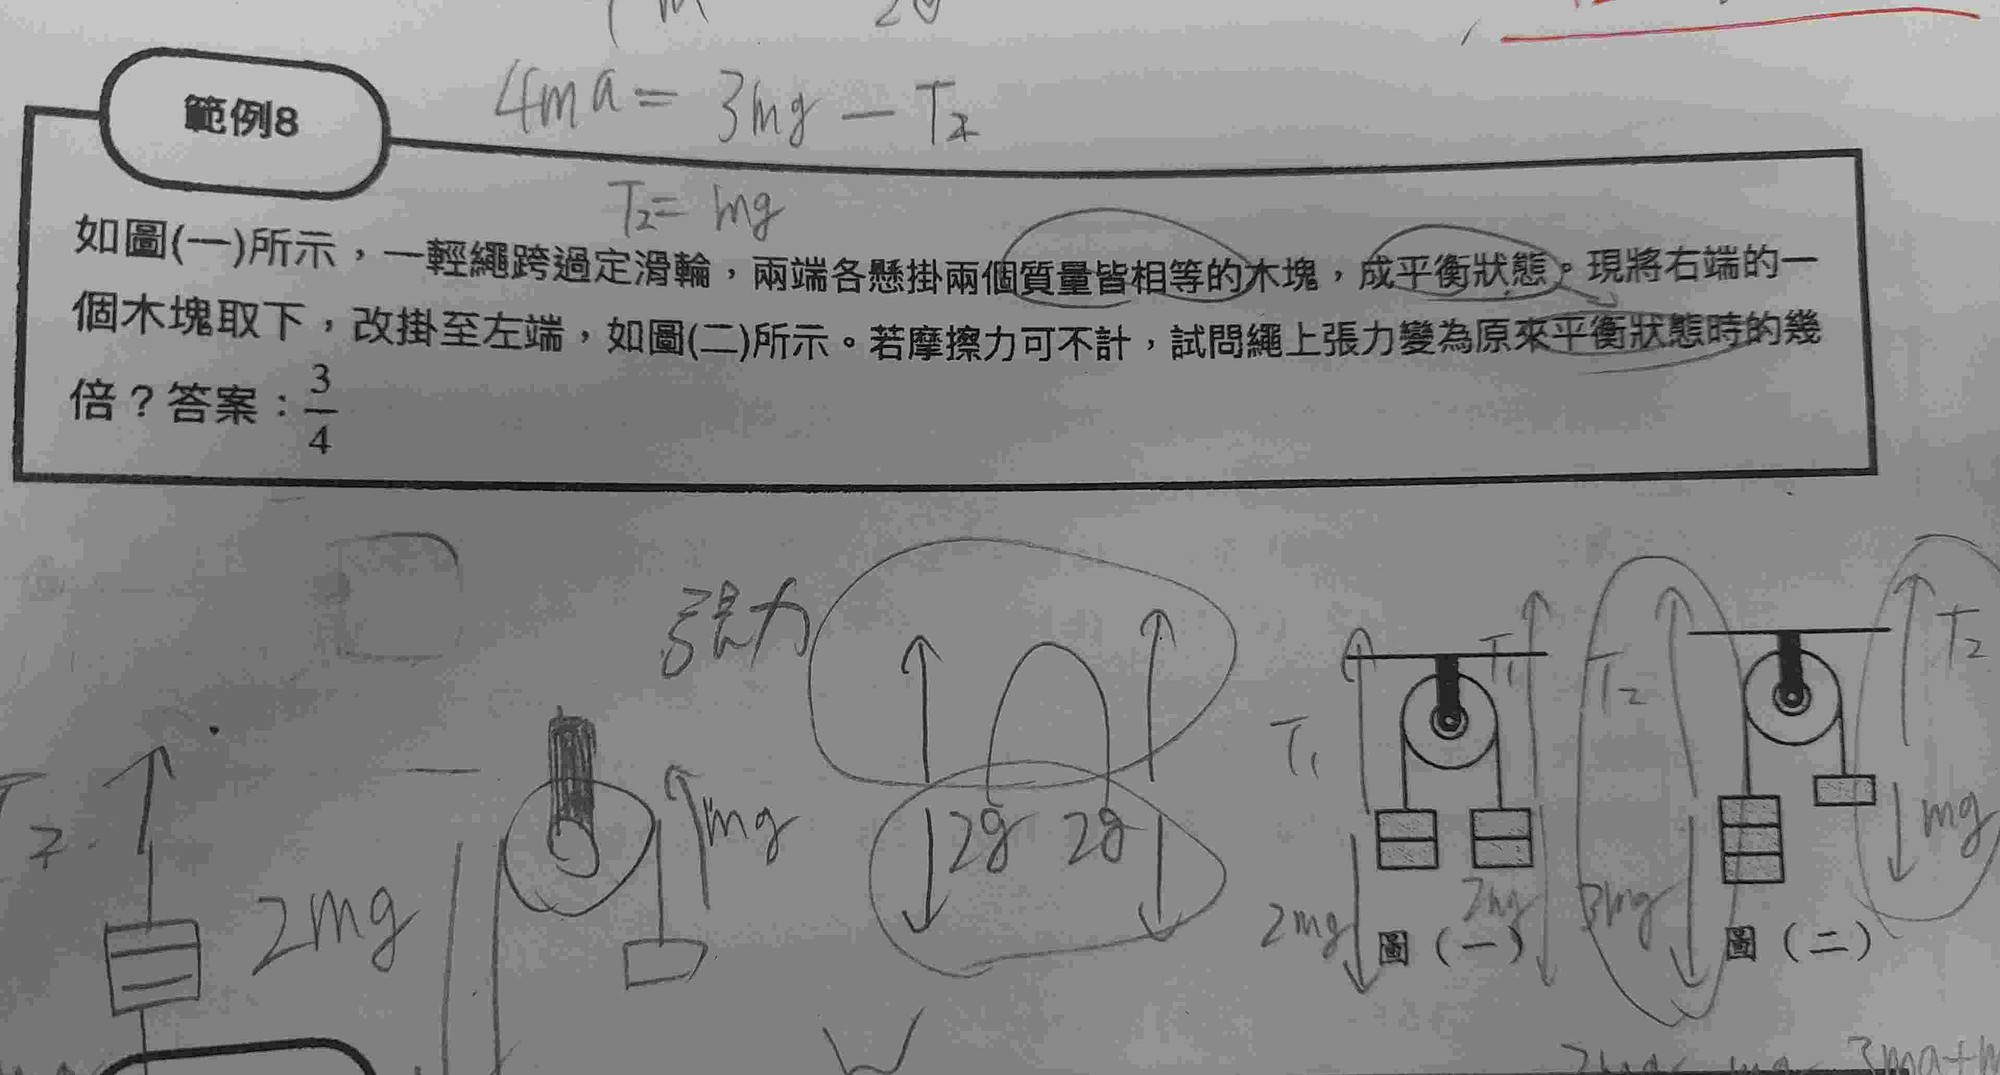 4ma = 3mg - T₂
範例8
T₂= mg
如圖(一)所示，一輕繩跨過定滑輪，兩端各懸掛兩個質量皆相等的木塊，成平衡狀態。現將右端的一
個木塊取下，改掛至左端，如圖(二)所示。若摩擦力可不計，試問繩上張力變為原來平衡狀態時的幾
倍？答案：3/4
張力
T₁
T₁
T₂
T₂
2mg
mg
2g 2g
2mg
2mg
3mg
mg
圖（一）
圖（二）